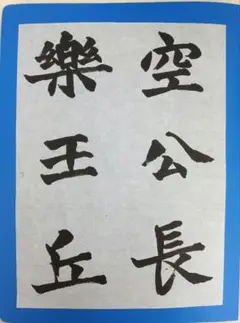 空公長
樂王丘